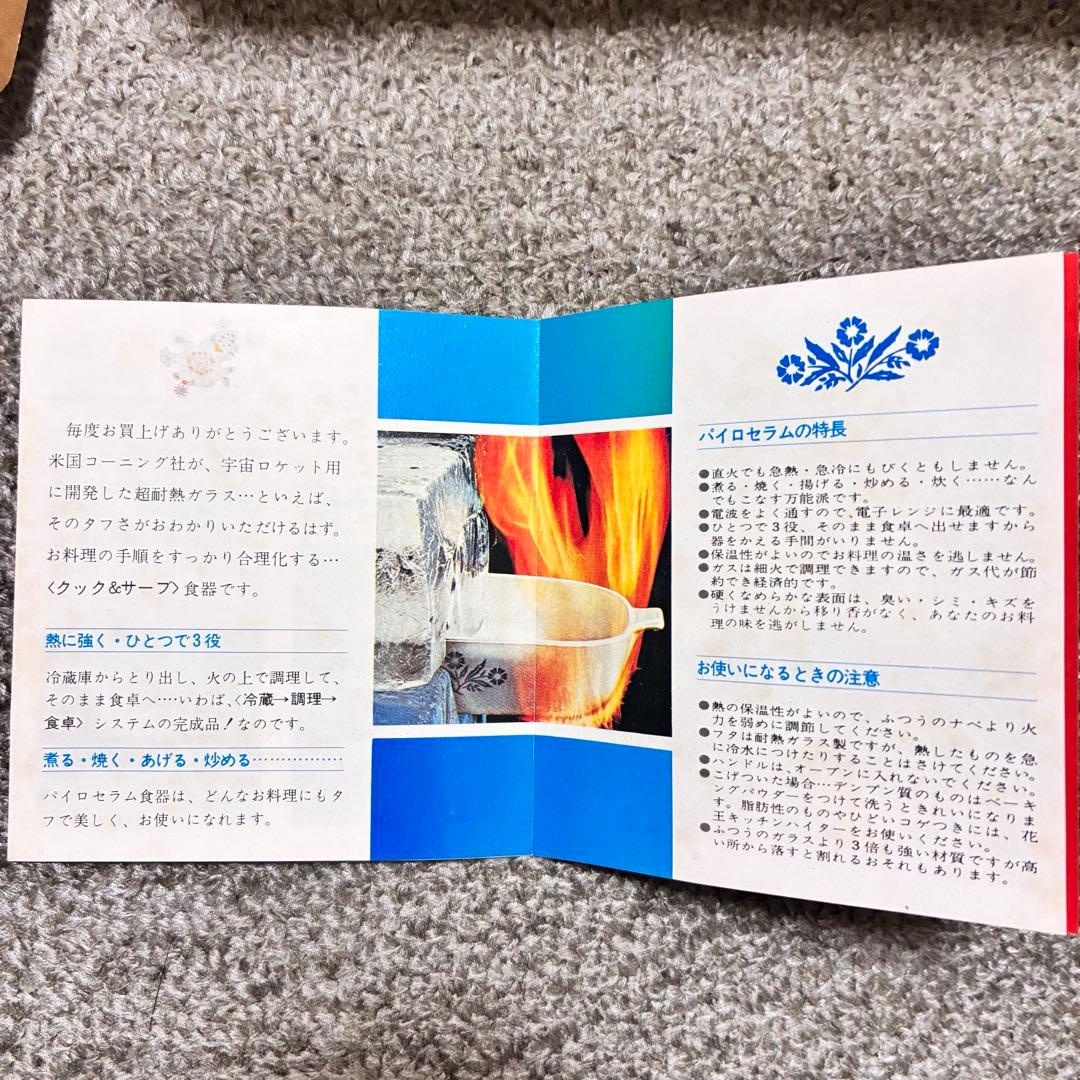 毎度お買上げありがとうございます。
米国コーニング社が、宇宙ロケット用
に開発した超耐熱ガラス…といえば、
そのタフさがおわかりいただけるはず。
お料理の手順をすっかり合理化する…
〈クック&サーブ〉食器です。
熱に強く・ひとつで3役
冷蔵庫からとり出し、火の上で調理して、
そのまま食卓へ‥‥いわば、〈冷蔵→調理→
食卓〉システムの完成品!なのです。
煮る・焼く・あげる・炒める………………
パイロセラム食器は、どんなお料理にもタ
フで美しく、お使いになれます。
パイロセラムの特長
●直火でも急熱・急冷にもびくともしません。
●煮る・焼く・揚げる・炒める・炊く……なん
でもこなす万能派です。
●電波をよく通すので、電子レンジに最適です。
●ひとつで3役、そのまま食卓へ出せますから
器をかえる手間がいりません。
●保温性がよいのでお料理の温さを逃しません。
●ガスは細火で調理できますので、ガス代が節
約でき経済的です。
●硬くなめらかな表面は、臭い・シミ・キズを
うけませんから移り香がなく、あなたのお料
理の味を逃がしません。
お使いになるときの注意
●熱の保温性がよいので、ふつうのナベより火
力を弱めに調節してください。
●フタは耐熱ガラス製ですが、熱したものを急
に冷水につけたりすることはさけてください。
●ハンドルは、オーブンに入れないでください。
●こげついた場合…デンプン質のものはベーキ
ングパウダーをつけて洗うときれいになりま
す。脂肪性のものやひどいコゲつきには、花
王キッチンハイターをお使いください。
●ふつうのガラスより3倍も強い材質ですが高
い所から落すと割れるおそれもあります。